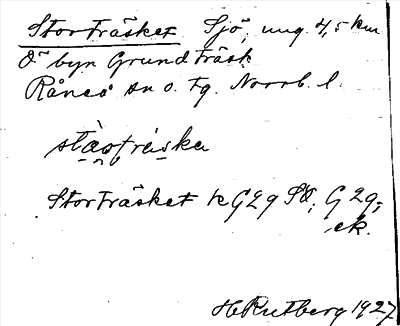 Storträsket Sjö, ung. 4,5 km
O om byn Grundträsk
Råneå sn o. tg. Norrb. l.
Storträsket k G29 SO; G29;
ek.
H Rutberg 1927